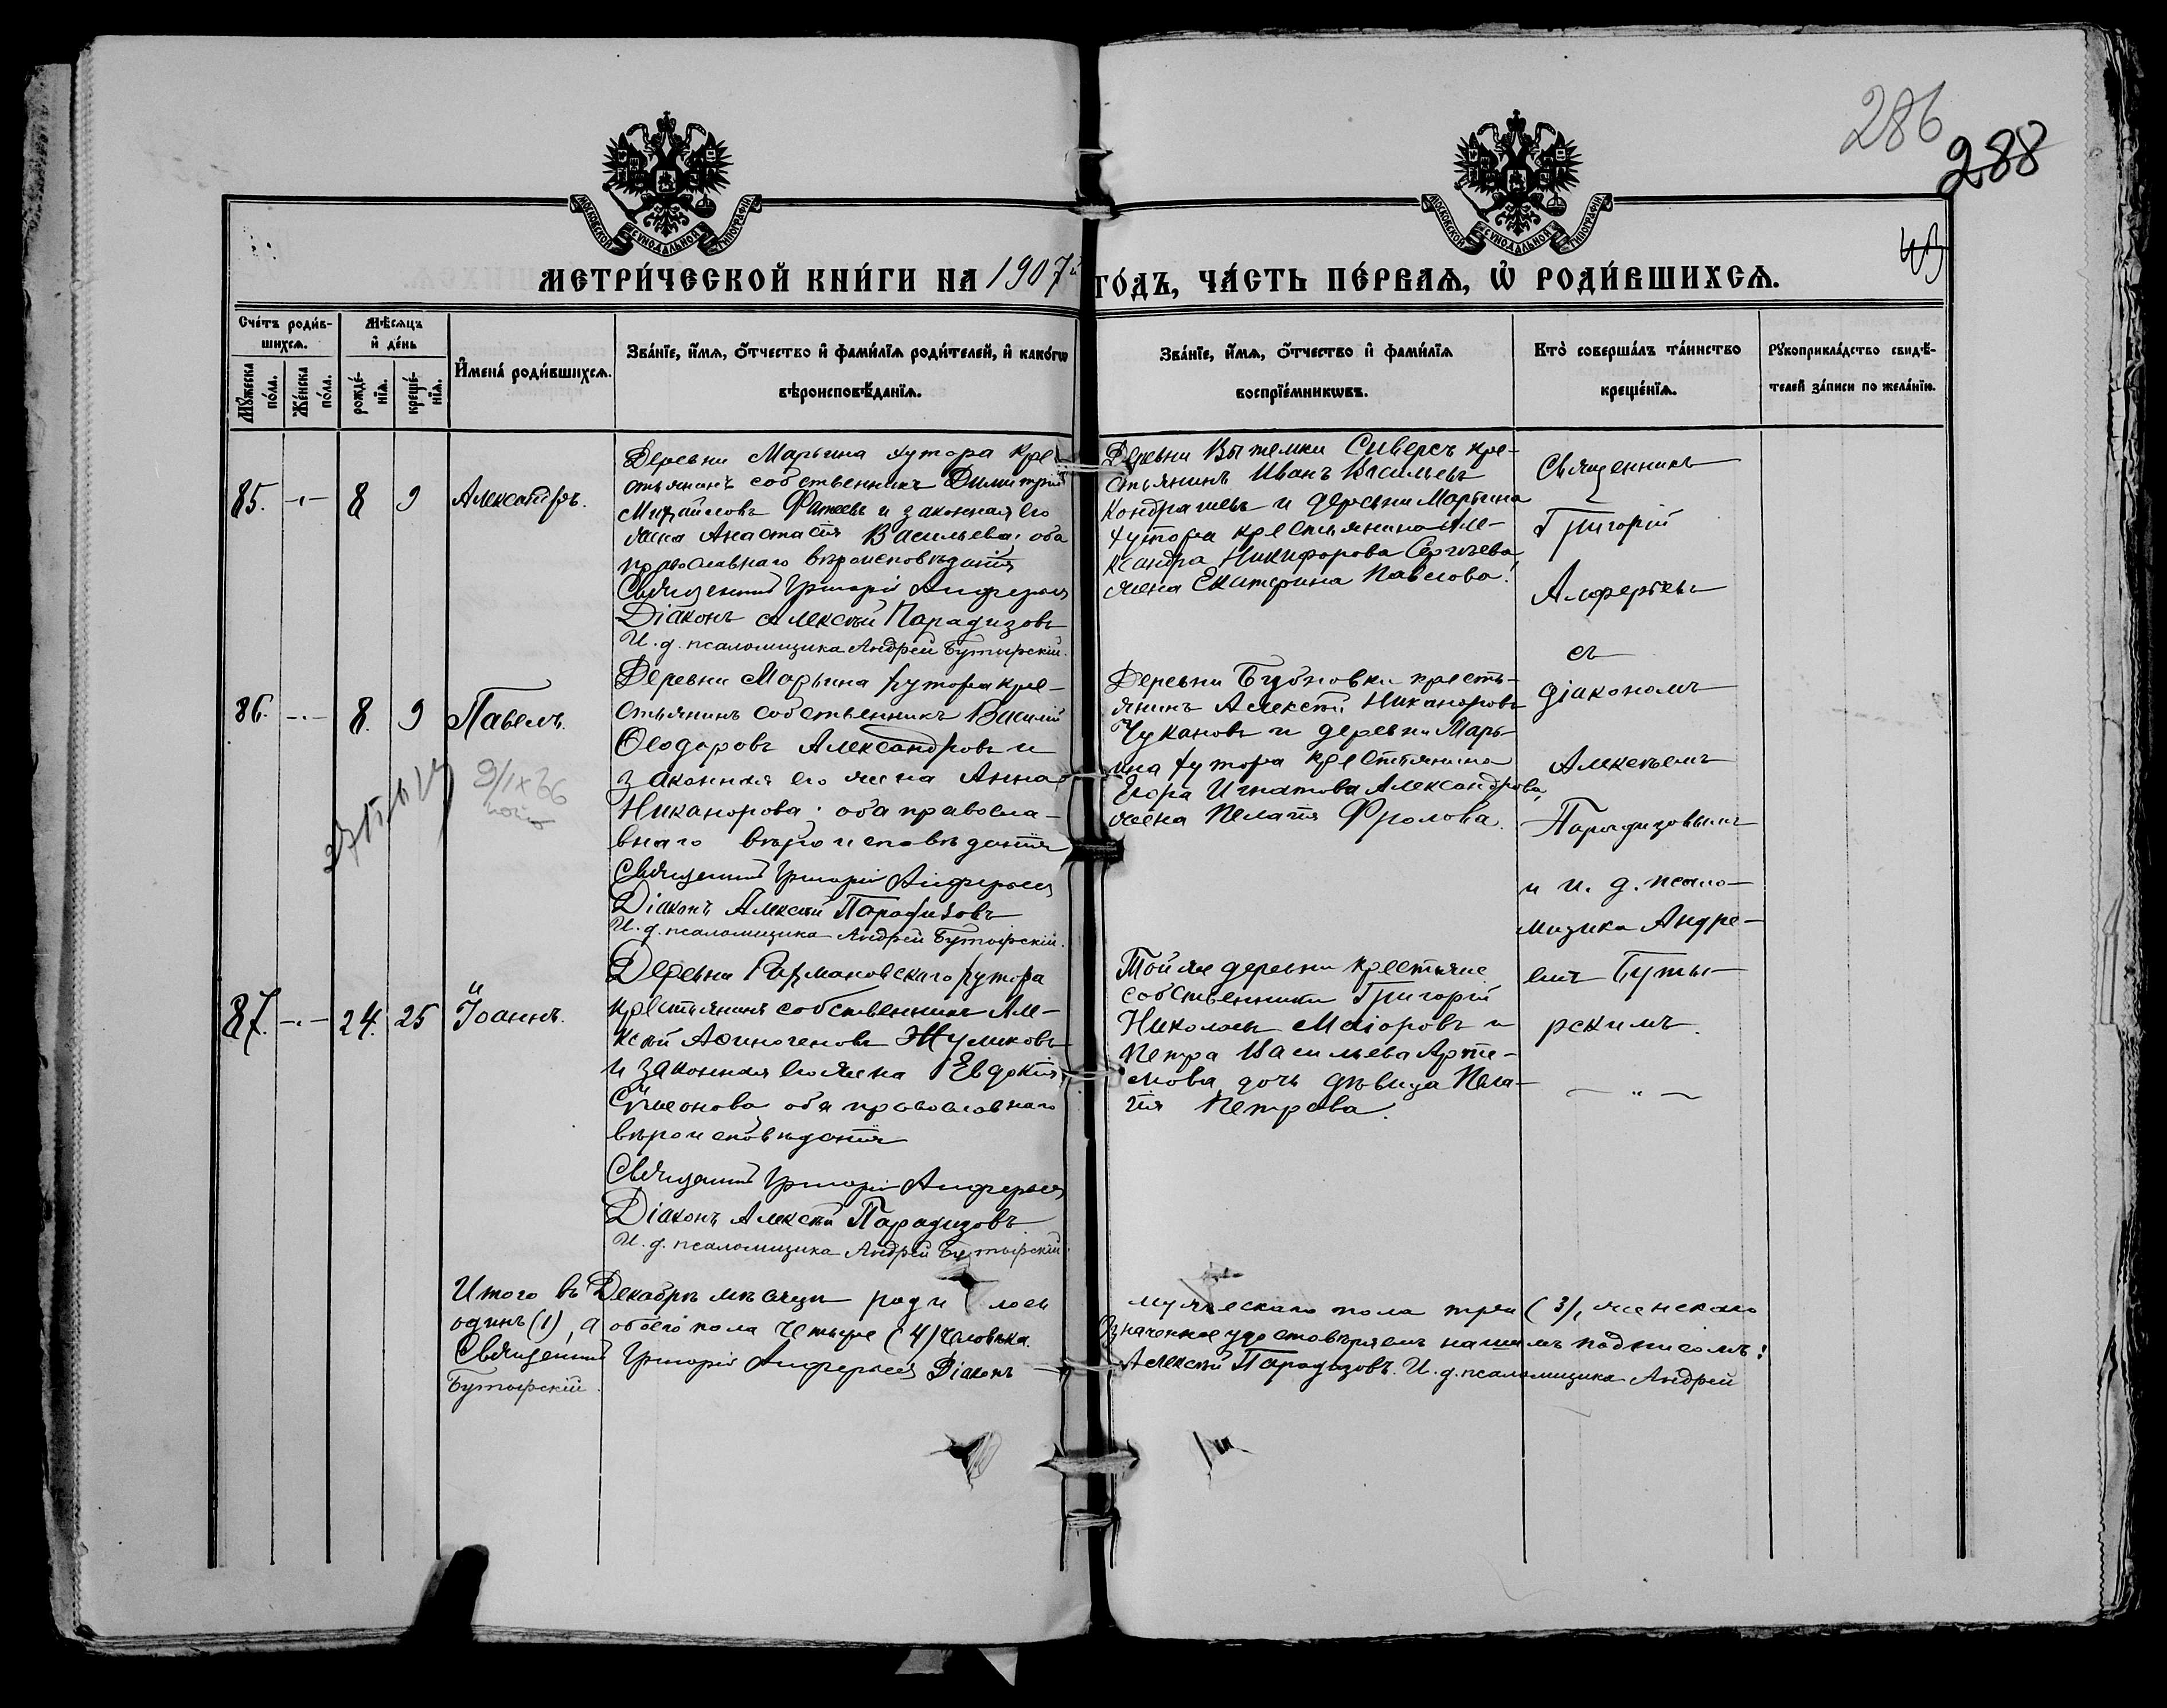 286
288
МОСКОВСКОЙ СѴНОДАЛЬНОЙ ТИПОГРАФІИ
МОСКОВСКОЙ СѴНОДАЛЬНОЙ ТИПОГРАФІИ
МЕТРИ́ЧЕСКОЙ КНИ́ГИ НА 1907й ГО́ДЪ, ЧА́СТЬ ПЕ́РВАѦ, Ѡ҆ РОДИ́ВШИХСѦ.
Сче́тъ роди́в-
шихсѧ.
Мꙋ́жеска по́ла.
Же́нска по́ла.
Мѣ́сѧцъ
и҆ де́нь
рожде́-
нїѧ.
креще́-
нїѧ.
И҆мена̀ роди́вшихсѧ.
Зва́нїе, и҆́мѧ, ѻ҆́тчество и҆ фами́лїѧ роди́телей, и҆ како́гѡ
вѣроисповѣ́данїѧ.
Зва́нїе, и҆́мѧ, ѻ҆́тчество и҆ фами́лїѧ
воспрїе́мникѡвъ.
Кто̀ соверша́лъ та́инство
креще́нїѧ.
Рꙋкоприкла́дство свидѣ́-
телей за́писи по жела́нїю.
85. -"- 8 9 Александръ.
Деревни Марьина хутора кре-
стьянинъ собственникъ Димитрій
Михайловъ Фатеевъ и законная его
жена Анастасія Васильева; оба
православнаго вѣроисповѣданія
Священникъ Григорій Алферьевъ
Діаконъ Алексѣй Парадизовъ
И. д. псаломщика Андрей Бутырскій.
Деревни Вытемки Сиверсъ кре-
стьянинъ Иванъ Васильевъ
Кондрашевъ и деревни Марьина
хутора крестьянина Але-
ксандра Никифорова Сергѣева
жена Екатерина Павлова.
Священникъ
Григорій
Алферьевъ
съ
діакономъ
Алексѣемъ
Парадизовымъ
и и. д. псало-
мщика Андре-
емъ Буты-
рскимъ.
86. -"- 8. 9 Павелъ.
9/IX 36
Деревни Марьина хутора кре-
стьянинъ собственникъ Василій
Ѳеодоровъ Александровъ и
законная его жена Анна
Никанорова; оба правосла-
внаго вѣроисповѣданія
Священникъ Григорій Алферьевъ
Діаконъ Алексѣй Парадизовъ
И. д. псаломщика Андрей Бутырскій.
Деревни Бубновки кресть-
янинъ Алексѣй Никаноровъ
Чукановъ и деревни Марь-
ина хутора крестьянина
Егора Игнатова Александрова,
жена Пелагія Фролова.
87. -"- 24. 25 Іоаннъ.
Деревни Рахмановскаго хутора
крестьянинъ собственникъ Але-
ксѣй Аѳиногеновъ Жуликовъ
и законная его жена Евдокія
Сѵмеонова оба православнаго
вѣроисповѣданія
Священникъ Григорій Алферьевъ
Діаконъ Алексѣй Парадизовъ
И. д. псаломщика Андрей Бутырскій.
Той же деревни крестьяне
собственники Григорій
Николаевъ Маіоровъ и
Петра Васильева Арте-
мова дочь дѣвица Пела-
гія Петрова.
Итого въ Декабрѣ мѣсяцѣ родилось мужескаго пола три (3), женскаго
одинъ (1), а обоего пола четыре (4) человѣка. Означенное удостовѣряемъ нашимъ подписомъ:
Священникъ Григорій Алферьевъ Діаконъ Алексѣй Парадизовъ. И. д. псаломщика Андрей
Бутырскій.